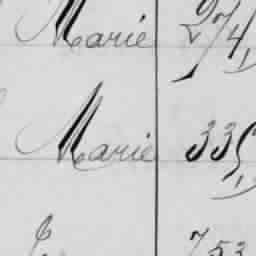 Marie 274
Marie 335
753